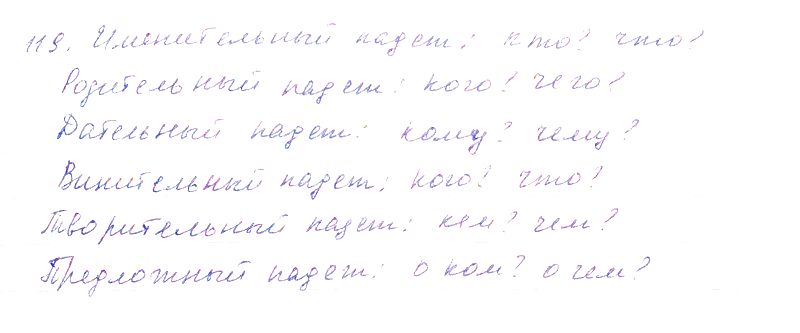 119. Именительный падеж: кто? что?
Родительный падеж: кого? чего?
Дательный падеж: кому? чему?
Винительный падеж: кого? что?
Творительный падеж: кем? чем?
Предложный падеж: о ком? о чем?